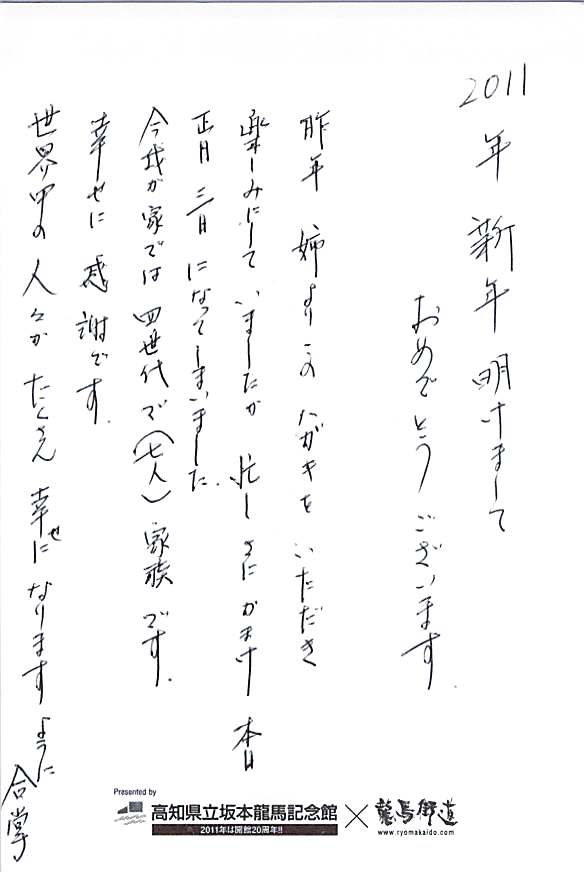 2011年 新年明けまして
おめでとうございます.
昨年 姉よりこのハガキをいただき
楽しみにして いましたが 忙しさにかまけ 本日
正月 三日 になってしまいました.
今我が家では 四世代で(七人) 家族です.
幸せに 感謝です.
世界中の人々が たくさん 幸せに なります ように
合掌
Presented by
高知県立坂本龍馬記念館 × 龍馬街道
2011年は開館20周年!!
www.ryomakaido.com